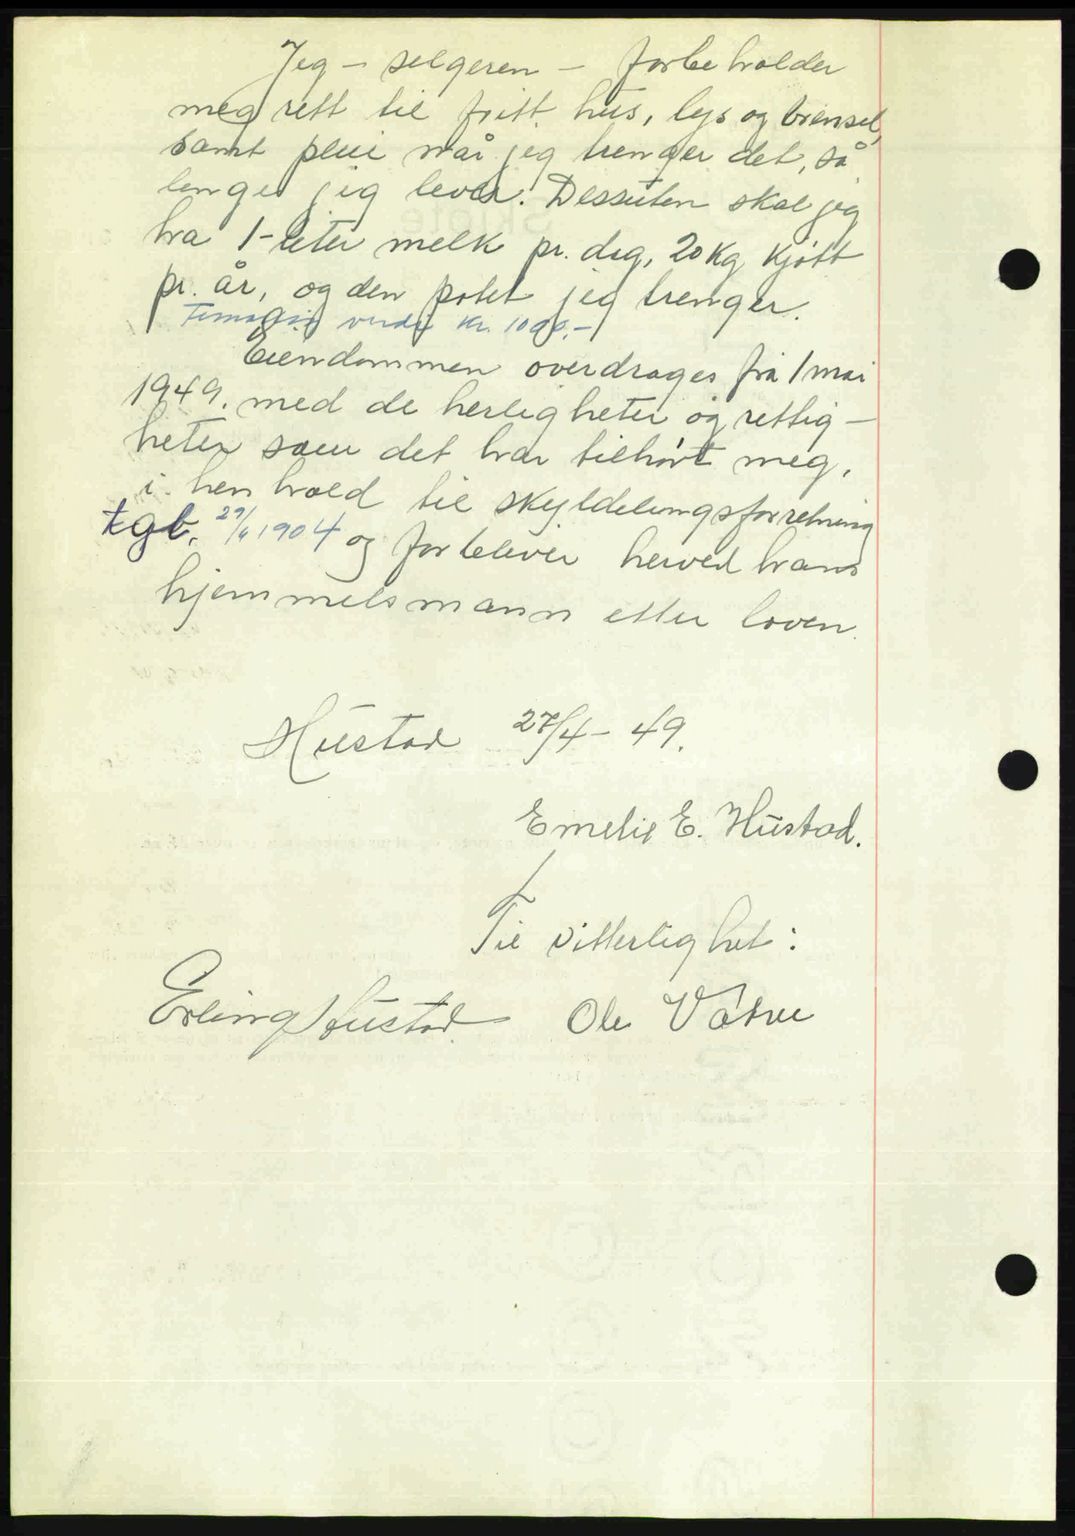 Jeg – selgeren – forbeholder
meg rett til fritt hus, lys og brensel,
samt pleie når jeg trenger det, så
lenge jeg lever. Dessuten skal jeg
ha 1-liter melk pr. dag, 20 kg kjøtt
pr. år, og den potet jeg trenger.
verdi kr. 1000,-
Eiendommen overdrages fra 1 mai
1949. med de herligheter og rettig-
heter som det har tilhørt meg,
i henhold til skyldelingsforretning
tgb. 1904 og forblever herved hans
hjemmelsmann etter loven.
Hustad 27/4 - 49.
Emelie E. Hustad.
Til vitterlighet:
Erling Hustad. Ole